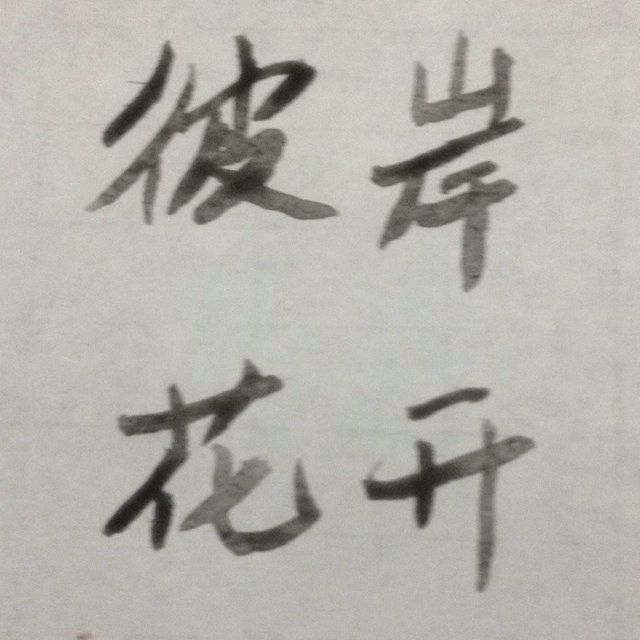 彼岸
花开